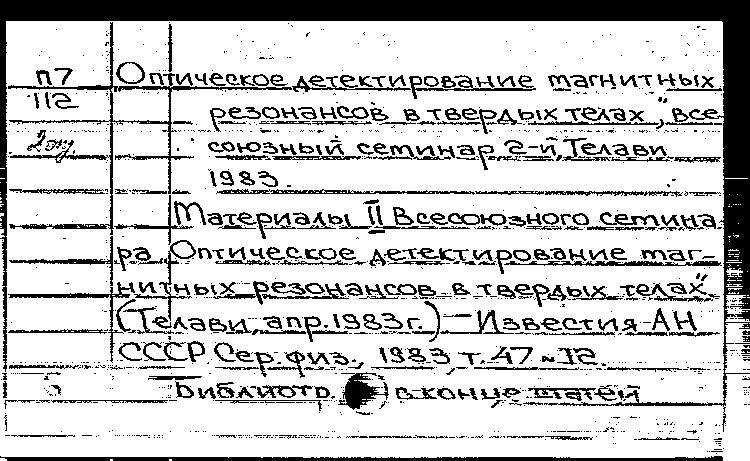 П7 Оптическое детектирование магнитных
112 резонансов в твердых телах", все-
союзный семинар 2-й, Телави
1983.
Материалы II Всесоюзного семина
ра „Оптическое детектирование маг-
нитных резонансов в твердых телах"
(Телави, апр. 1983 г.) — Известия АН
СССР Сер. физ., 1983 т. 47 №12.
Библиогр. в конце статей